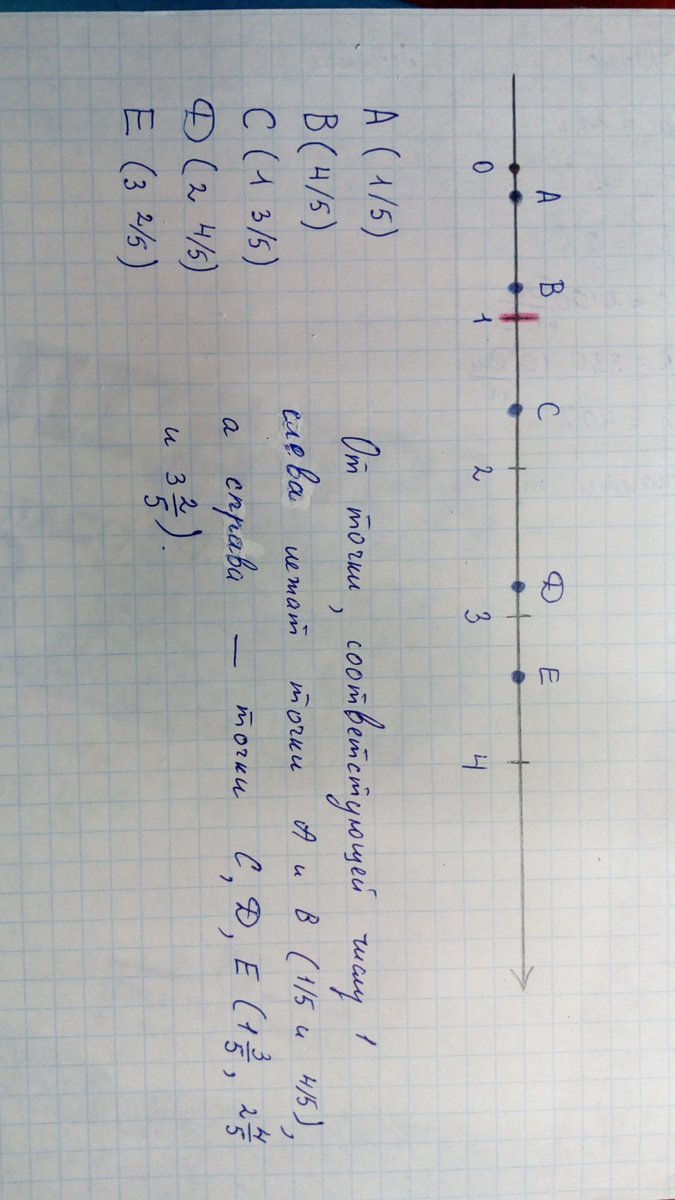 A B C D E
0 1 2 3 4
A (1/5)
B (4/5)
C (1 3/5)
D (2 4/5)
E (3 2/5)
От точки, соответстующей числу 1
слева лежат точки A и B (1/5 и 4/5),
а справа — точки C, D, E (1 3/5, 2 4/5
и 3 2/5).